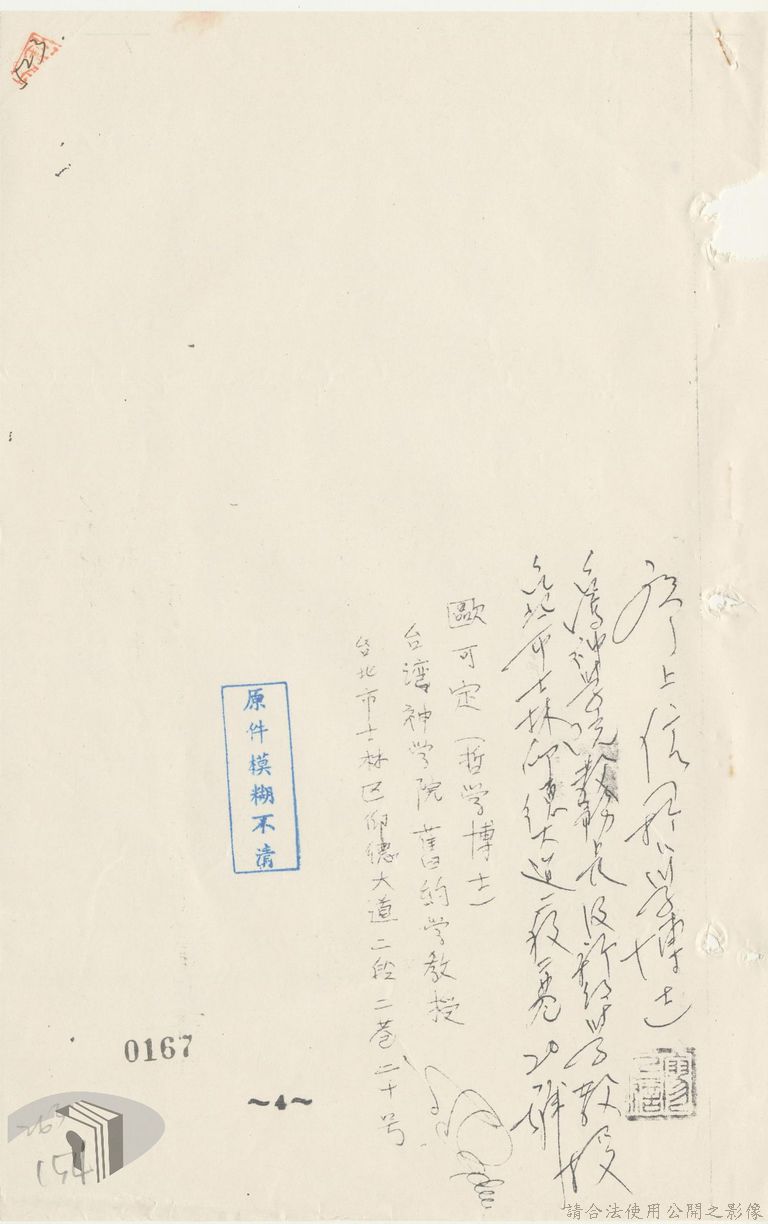 523.
廖上信 哲學博士
台灣神學院教務長及新約學教授
台北市士林仰德大道二段二巷20號
歐可定（哲学博士）
台湾神学院 舊約学教授
台北市士林区仰德大道二段二巷二十号
原件模糊不清
0167
~4~
263
154
請合法使用公開之影像